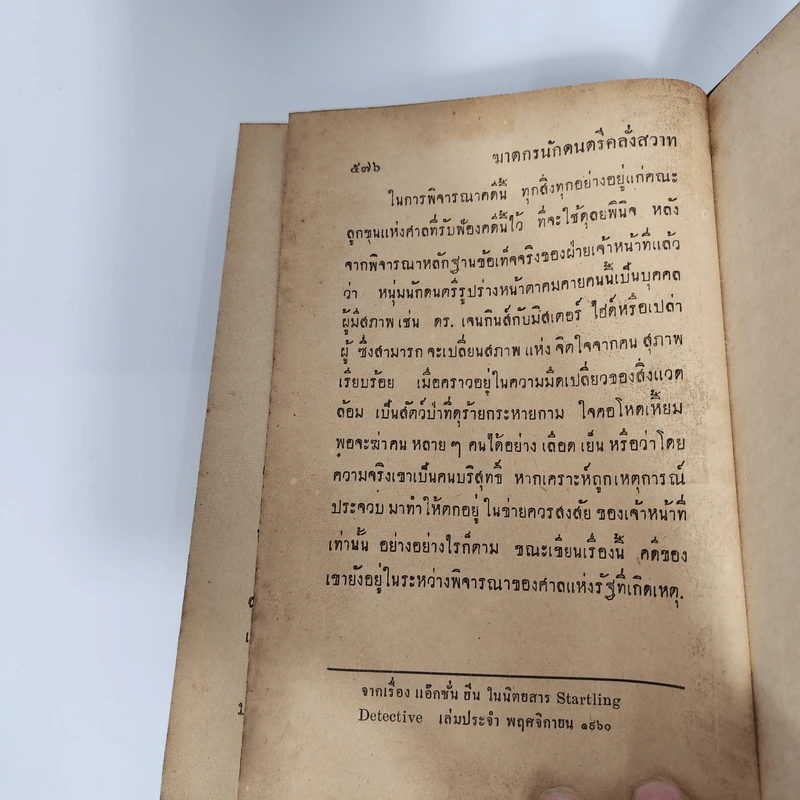 ๕๗๖ ฆาตกรนักดนตรีคลั่งสวาท
ในการพิจารณาคดีนี้ ทุกสิ่งทุกอย่างอยู่แก่คณะ
ลูกขุนแห่งศาลที่รับฟ้องคดีนี้ไว้ ที่จะใช้ดุลยพินิจ หลัง
จากพิจารณาหลักฐานข้อเท็จจริงของฝ่ายเจ้าหน้าที่แล้ว
ว่า หนุ่มนักดนตรีรูปร่างหน้าตาคมคายคนนี้เป็นบุคคล
ผู้มีสภาพ เช่น ดร. เจนกินส์กับมิสเตอร์ ไฮด์หรือเปล่า
ผู้ ซึ่งสามารถ จะเปลี่ยนสภาพ แห่ง จิตใจจากคน สุภาพ
เรียบร้อย เมื่อคราวอยู่ในความมืดเปลี่ยวของสิ่งแวด
ล้อม เป็นสัตว์ป่าที่ดุร้ายกระหายกาม ใจคอโหดเหี้ยม
พอจะฆ่าคน หลาย ๆ คนได้อย่าง เลือด เย็น หรือว่าโดย
ความจริงเขาเป็นคนบริสุทธิ์ หากเคราะห์ถูกเหตุการณ์
ประจวบ มาทำให้ตกอยู่ ในข่ายควรสงสัย ของเจ้าหน้าที่
เท่านั้น อย่างอย่างไรก็ตาม ขณะเขียนเรื่องนี้ คดีของ
เขายังอยู่ในระหว่างพิจารณาของศาลแห่งรัฐที่เกิดเหตุ.
จากเรื่อง แอ๊กชั่น ฮีน ในนิตยสาร Startling
Detective เล่มประจำ พฤศจิกายน ๑๙๖๐